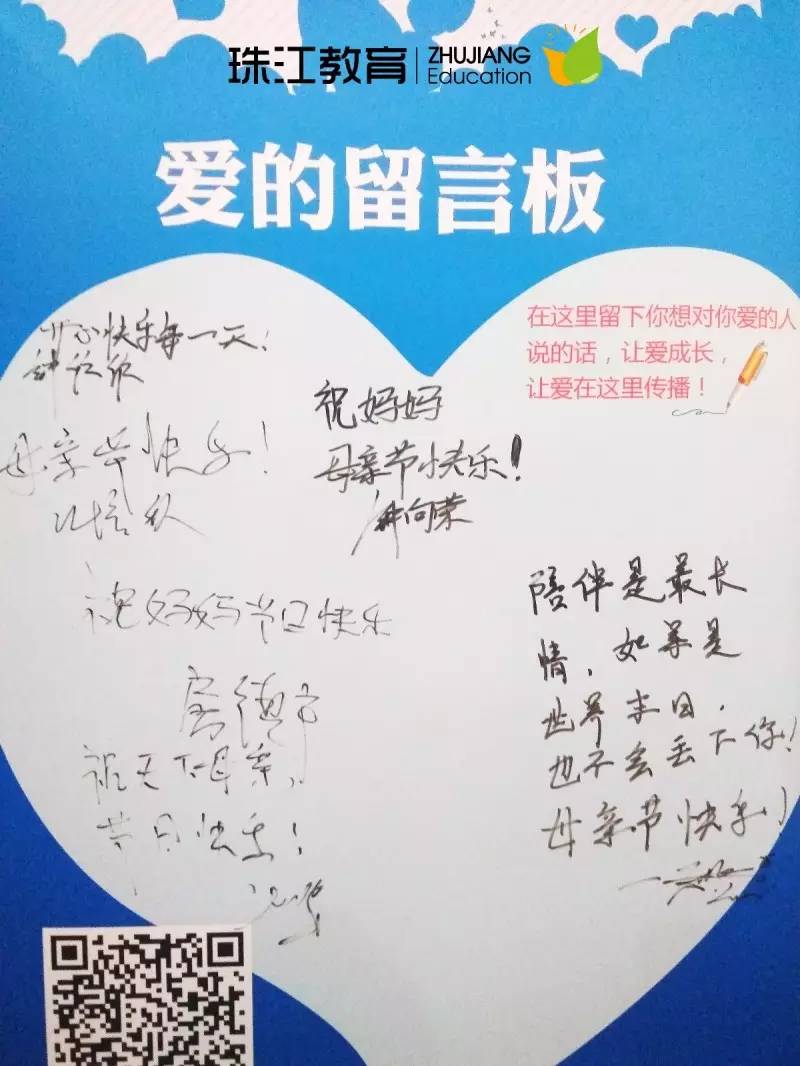 珠江教育 ZHUJIANG
Education
爱的留言板
在这里留下你想对你爱的人
说的话，让爱成长，
让爱在这里传播！
开心快乐每一天！
祝妈妈
母亲节快乐！
向荣
母亲节快乐！
祝妈妈节日快乐
祝天下母亲，
节日快乐！
陪伴是最长
情，如果是
世界末日，
也不会丢下你！
母亲节快乐！